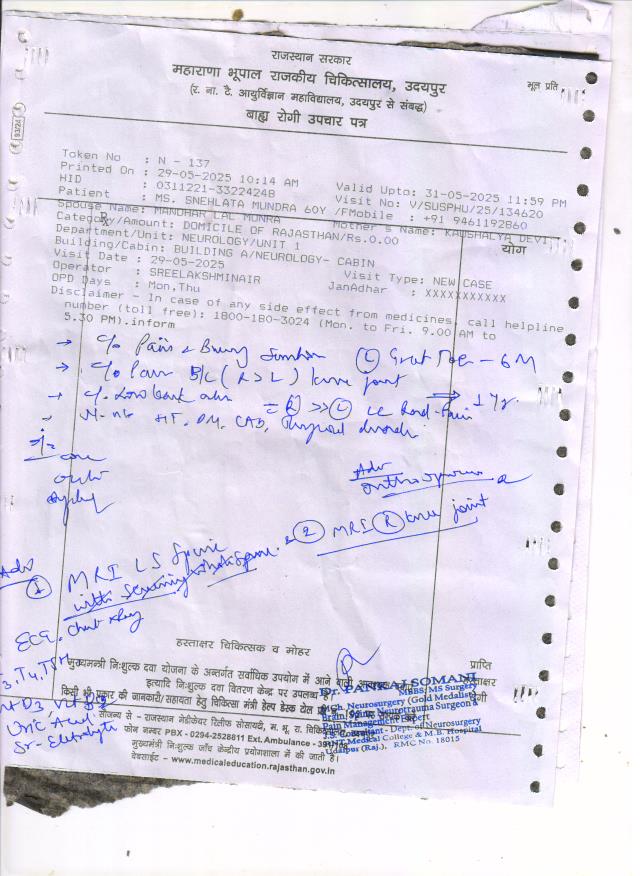 राजस्थान सरकार
महाराणा भूपाल राजकीय चिकित्सालय, उदयपुर
(र. ना. टै. आयुर्विज्ञान महाविद्यालय, उदयपुर से संबद्ध)
भूल प्रति
बाह्य रोगी उपचार पत्र
93/24
Token No : N - 137
Printed On : 29-05-2025 10:14 AM Valid Upto: 31-05-2025 11:59 PM
HID : 0311221-33224248 Visit No: V/SUSPHU/25/134620
Patient : MS. SNEHLATA MUNDRA 60Y /F Mobile : +91 9461192860
Spouse Name: MANOHAR LAL MUNRA Mother's Name: KAUSHALYA DEVI
Category/Amount: DOMICILE OF RAJASTHAN/Rs.0.00
Rx
योग
Department/Unit: NEUROLOGY/UNIT 1
Building/Cabin: BUILDING A/NEUROLOGY- CABIN
Visit Date : 29-05-2025 Visit Type: NEW CASE
Operator : SREELAKSHMINAIR JanAdhar : XXXXXXXXXXX
OPD Days : Mon,Thu
Disclaimer - In case of any side effect from medicines, call helpline
number (toll free): 1800-180-3024 (Mon. to Fri. 9.00 AM to
5.30 PM).inform
→ c/o Pain & Burning (L) Great Toe - 6 M
→ c/o Pain B/L (R>L) knee joint
→ c/o Low back (R) >> (L) LL Rad. Pain 1 Yr.
HT, DM, CAD, Thyroid disorder
Adv
Adv
(1) MRI LS Spine
with screening whole spine
& (2) MRI (R) knee joint
ECG, Chest Xray
T3, T4, TSH
Vit D3 Vit B12
Uric Acid
Sr. Electrolyte
हस्ताक्षर चिकित्सक व मोहर
प्राप्ति
हस्ताक्षर
रोगी
मुख्यमंत्री निःशुल्क दवा योजना के अन्तर्गत सर्वाधिक उपयोग में आने वाली
इत्यादि निःशुल्क दवा वितरण केन्द्र पर उपलब्ध है।
किसी भी प्रकार की जानकारी/सहायता हेतु चिकित्सा मंत्री हेल्प डेस्क टोल फ्री
सौजन्य से - राजस्थान मेडीकेयर रिलीफ सोसायटी, म. भू. रा.
फोन नम्बर PBX - 0294-2528811 Ext. Ambulance -
मुख्यमंत्री निःशुल्क जाँच केन्द्रीय प्रयोगशाला में की जाती है।
वेबसाईट - www.medicaleducation.rajasthan.gov.in
Dr. PANKAJ SOMANI
MBBS, MS Surgery
M.ch. Neurosurgery (Gold Medalist)
Brain, Spine, Neurotrauma Surgeon &
Pain Management Expert
Consultant - Dept. of Neurosurgery
RNT Medical College & M.B. Hospital
Udaipur (Raj.), RMC No. 18015